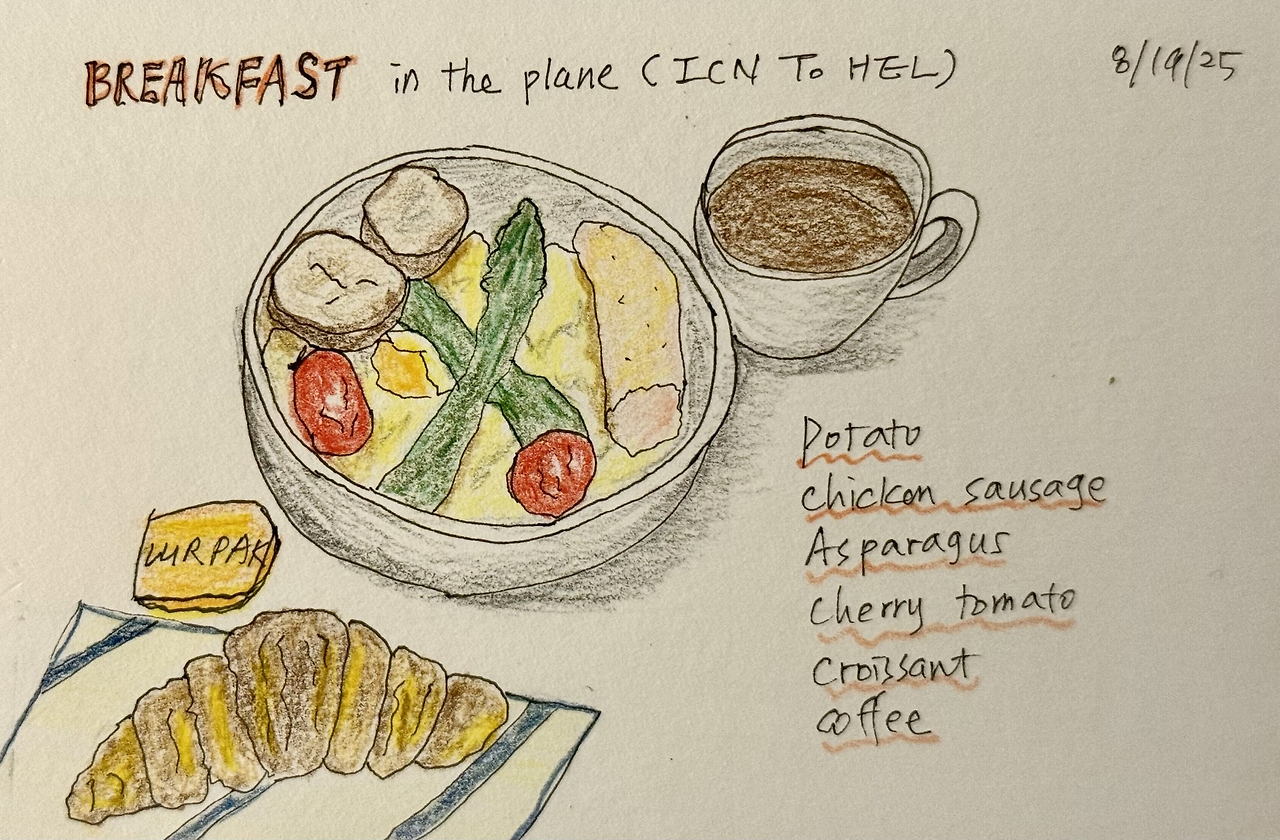 BREAKFAST in the plane (ICN To HEL)
8/19/25
Potato
chicken sausage
Asparagus
Cherry tomato
Croissant
coffee
LURPAK